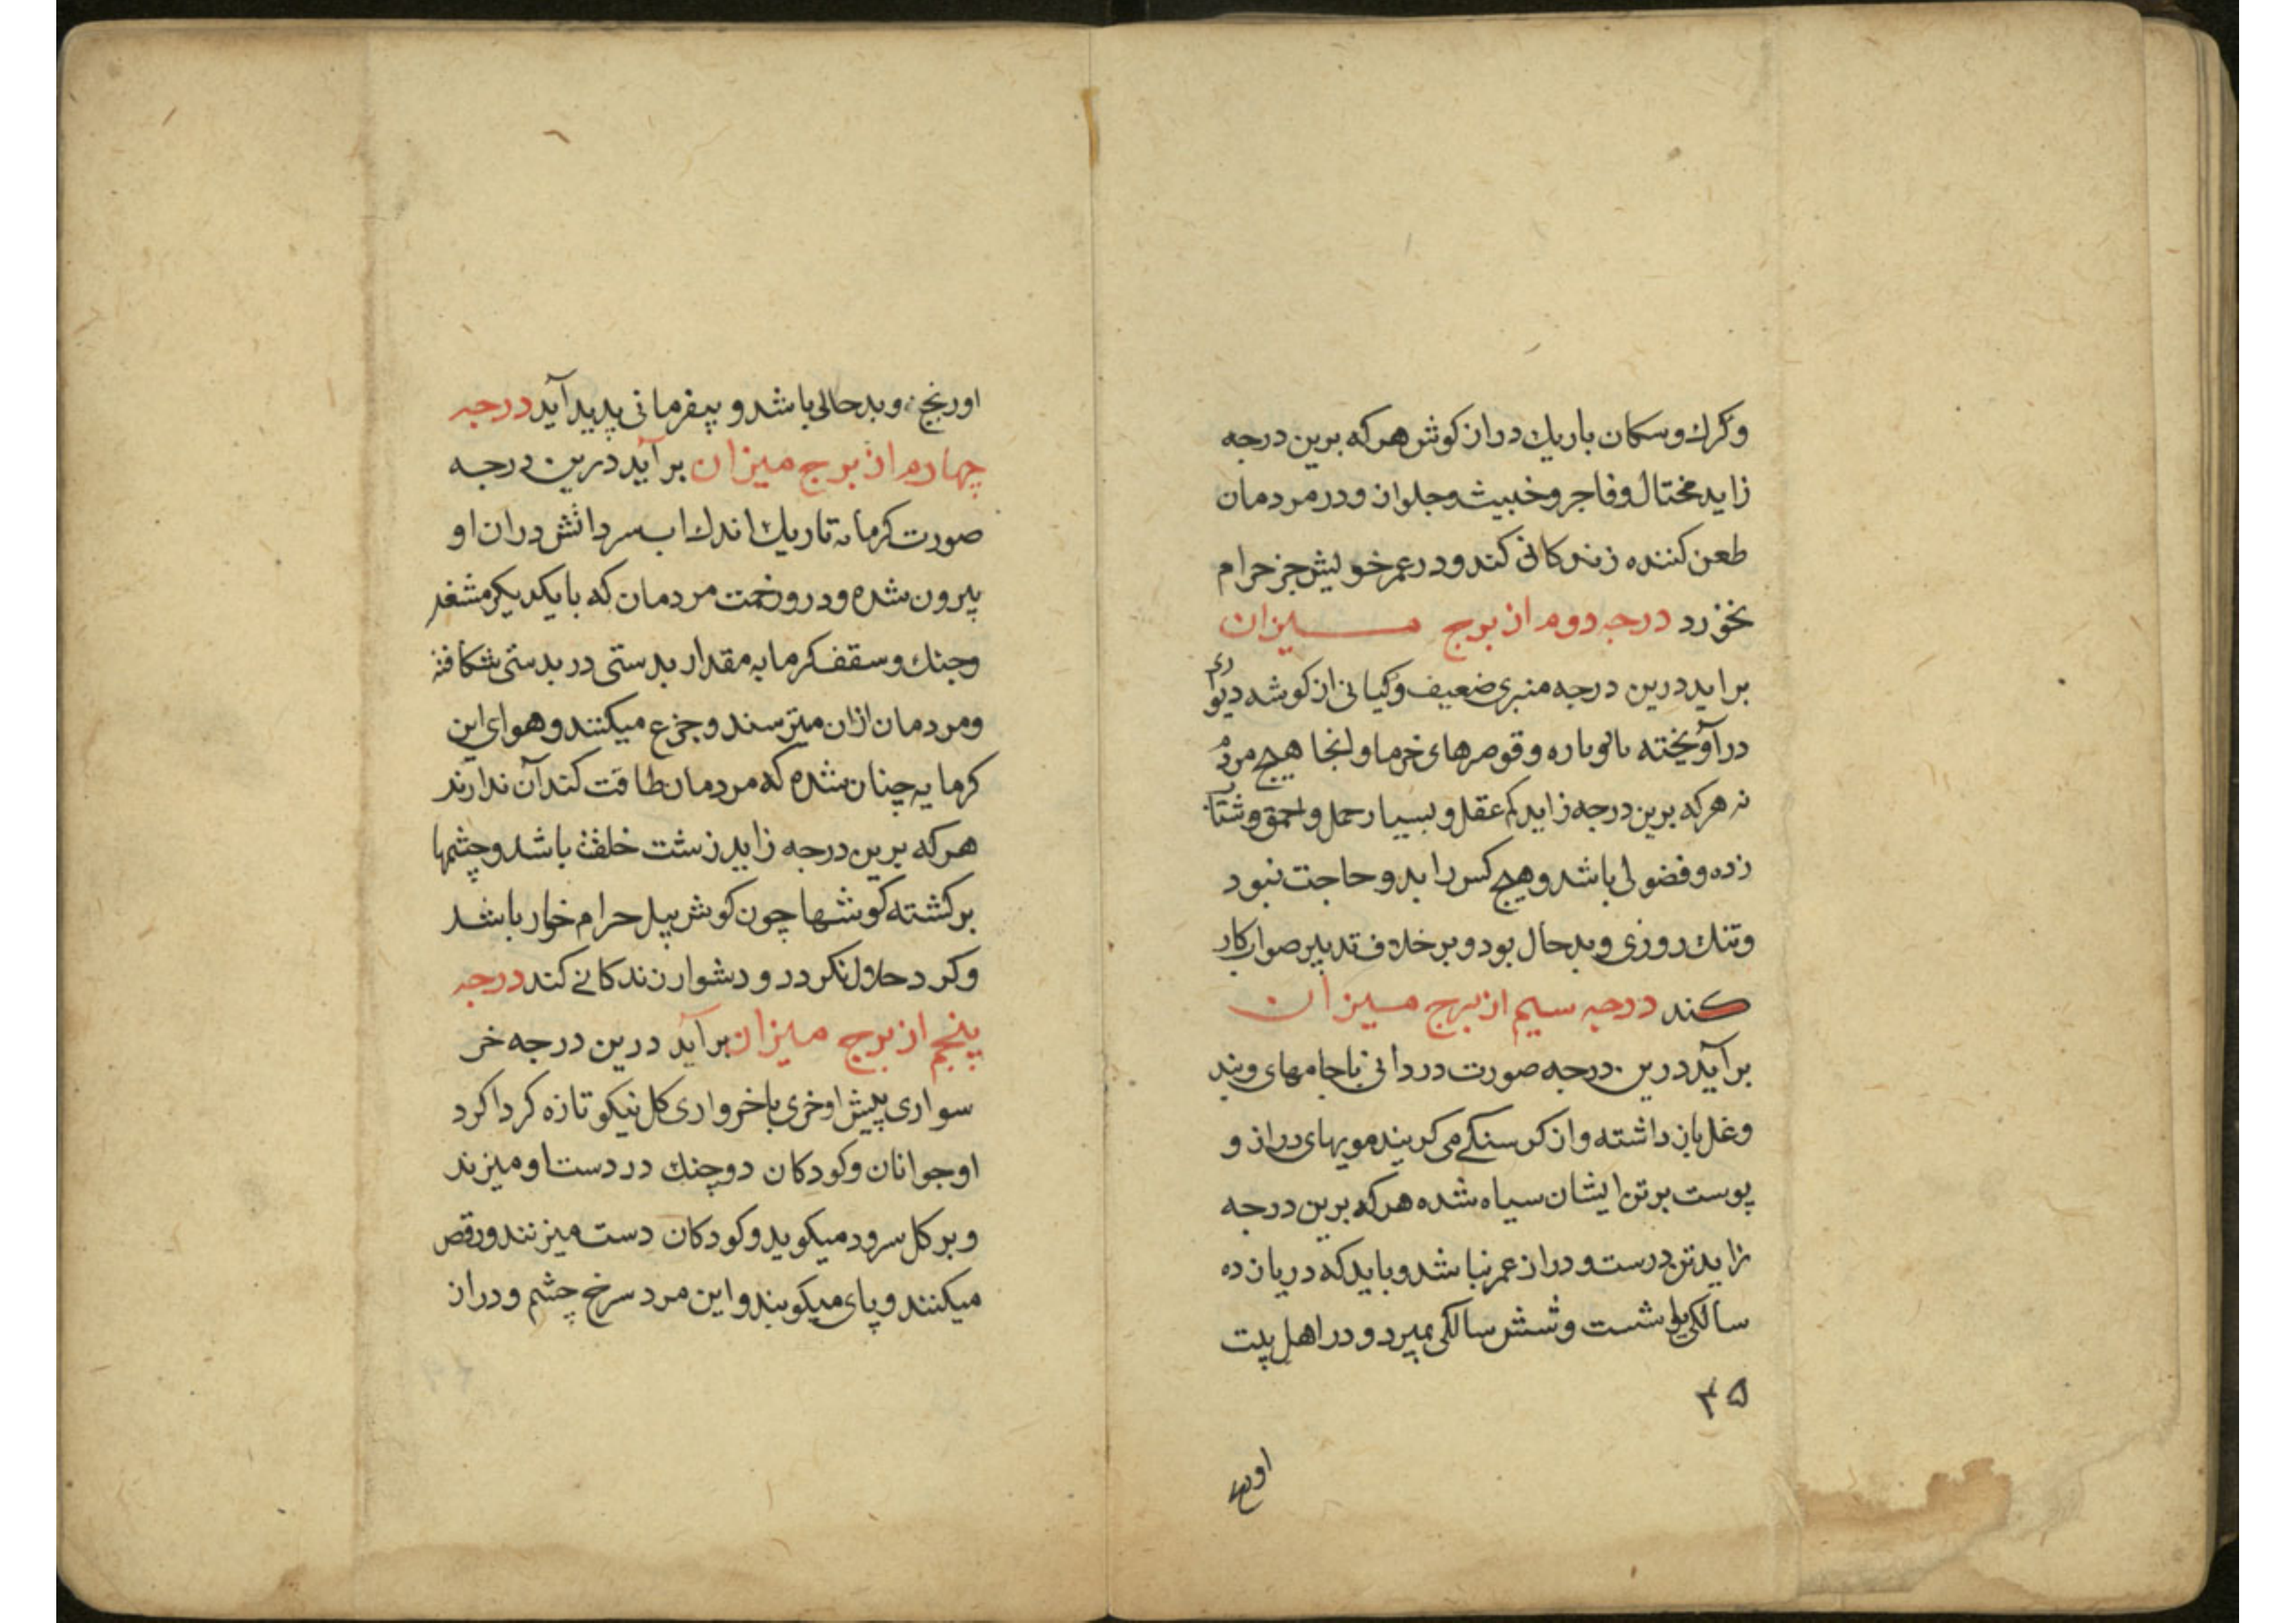 وکرك وسکان باریك دراز کوش هر که برین درجه
زاید مختال وفاجر وخبیث وجلوان ودر مردمان
طعن کننده زندکانی کند ودر عمر خویش جز حرام
نخورد درجه دوم از برج میزان
براید درین درجه منبری ضعیف وکیانی از کوشه دیواری
درآویخته بالوباره وقوصرهای خرما وانجا هیچ مردم
نه هر که برین درجه زاید کم عقل و بسیار حمل و احمق وشتاب
زده وفضولی باشد وهیچ کس را بدو حاجت نبود
وتنك روزی وبدحال بود وبر خلاف تدبیر صواب کار
کند درجه سیم از برج میزان
برآید درین درجه صورت دردانی با جامهای وبند
وغل باز داشته واز کرسنکی می کریند مویهای دراز و
پوست بر تن ایشان سیاه شده هر که برین درجه
زاید تن درست ودراز عمر نباشد وباید که در یازده
سالکی یا شست وشش سالکی بمیرد ودر اهل بیت
۳۵
اورنج
اورنج وبدحالی باشد و بیفرمانی پدید آید درجه
چهارم از برج میزان برآید درین درجه
صورت کرمابه تاریك اندك اب سرد اتش دران او
بیرون شده ودر وزحمت مردمان که با یکدیکر مشغله
وجنك وسقف کرمابه مقدار بدستی در بدستی شکافته
ومردمان ازان میترسند وجزع میکنند وهوای این
کرمابه چنان شده که مردمان طاقت کند آن ندارند
هر که برین درجه زاید زشت خلقت باشد وچشمها
برکشته کوشها چون کوش پیل حرام خوار باشد
وکرد حلال نکردد و دشوار زندکانی کند درجه
پنجم از برج میزان برآید درین درجه خر
سواری پیش او خری با خرواری کل نیکو تازه کرداکرد
او جوانان وکودکان دو چنك در دست او میزند
و بر کل سرود میکوید وکودکان دست میزنند ورقص
میکنند وپای میکوبند واین مرد سرخ چشم ودراز